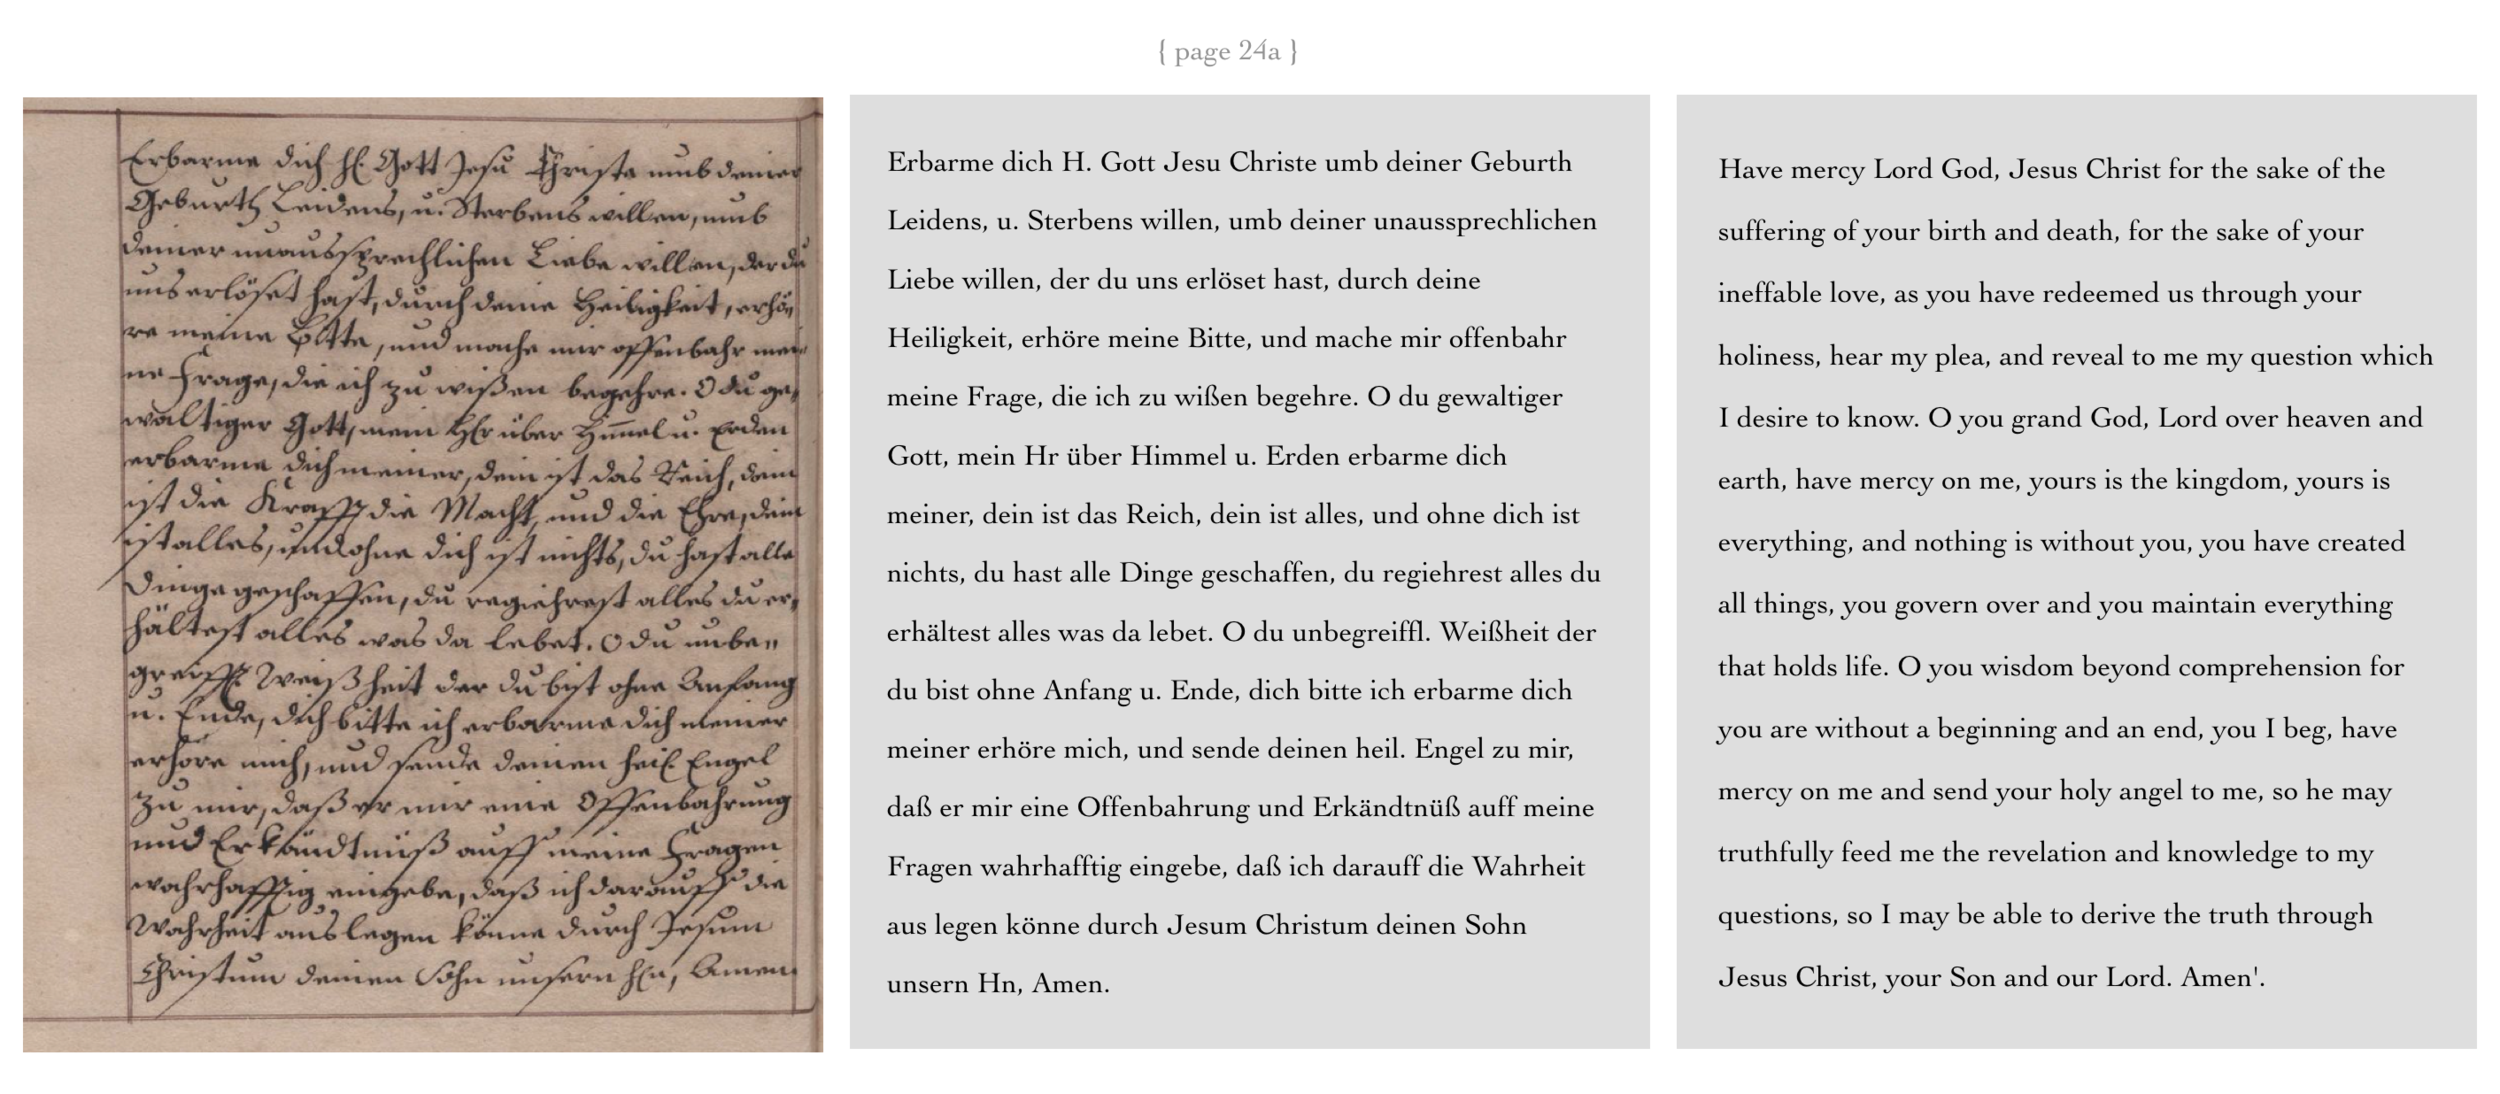 { page 24a }
Erbarme dich H. Gott Jesu Christe umb deiner
Geburth Leidens, u. Sterbens willen, umb
deiner unaussprechlichen Liebe willen, der du
uns erlöset hast, durch deine Heiligkeit, erhö-
re meine Bitte, und mache mir offenbahr mei-
ne Frage, die ich zu wißen begehre. O du ge-
waltiger Gott, mein Hr über Himmel u. Erden
erbarme dich meiner, dein ist das Reich, dein
ist die Krafft die Macht, und die Ehre, dein
ist alles, und ohne dich ist nichts, du hast alle
Dinge geschaffen, du regiehrest alles du er-
hältest alles was da lebet. O du unbe-
greiffl. Weißheit der du bist ohne Anfang
u. Ende, dich bitte ich erbarme dich meiner
erhöre mich, und sende deinen heil. Engel
zu mir, daß er mir eine Offenbahrung
und Erkändtnüß auff meine Fragen
wahrhafftig eingebe, daß ich darauff die
Wahrheit aus legen könne durch Jesum
Christum deinen Sohn unsern Hn, Amen.
Erbarme dich H. Gott Jesu Christe umb deiner Geburth
Leidens, u. Sterbens willen, umb deiner unaussprechlichen
Liebe willen, der du uns erlöset hast, durch deine
Heiligkeit, erhöre meine Bitte, und mache mir offenbahr
meine Frage, die ich zu wißen begehre. O du gewaltiger
Gott, mein Hr über Himmel u. Erden erbarme dich
meiner, dein ist das Reich, dein ist alles, und ohne dich ist
nichts, du hast alle Dinge geschaffen, du regiehrest alles du
erhältest alles was da lebet. O du unbegreiffl. Weißheit der
du bist ohne Anfang u. Ende, dich bitte ich erbarme dich
meiner erhöre mich, und sende deinen heil. Engel zu mir,
daß er mir eine Offenbahrung und Erkändtnüß auff meine
Fragen wahrhafftig eingebe, daß ich darauff die Wahrheit
aus legen könne durch Jesum Christum deinen Sohn
unsern Hn, Amen.
Have mercy Lord God, Jesus Christ for the sake of the
suffering of your birth and death, for the sake of your
ineffable love, as you have redeemed us through your
holiness, hear my plea, and reveal to me my question which
I desire to know. O you grand God, Lord over heaven and
earth, have mercy on me, yours is the kingdom, yours is
everything, and nothing is without you, you have created
all things, you govern over and you maintain everything
that holds life. O you wisdom beyond comprehension for
you are without a beginning and an end, you I beg, have
mercy on me and send your holy angel to me, so he may
truthfully feed me the revelation and knowledge to my
questions, so I may be able to derive the truth through
Jesus Christ, your Son and our Lord. Amen'.